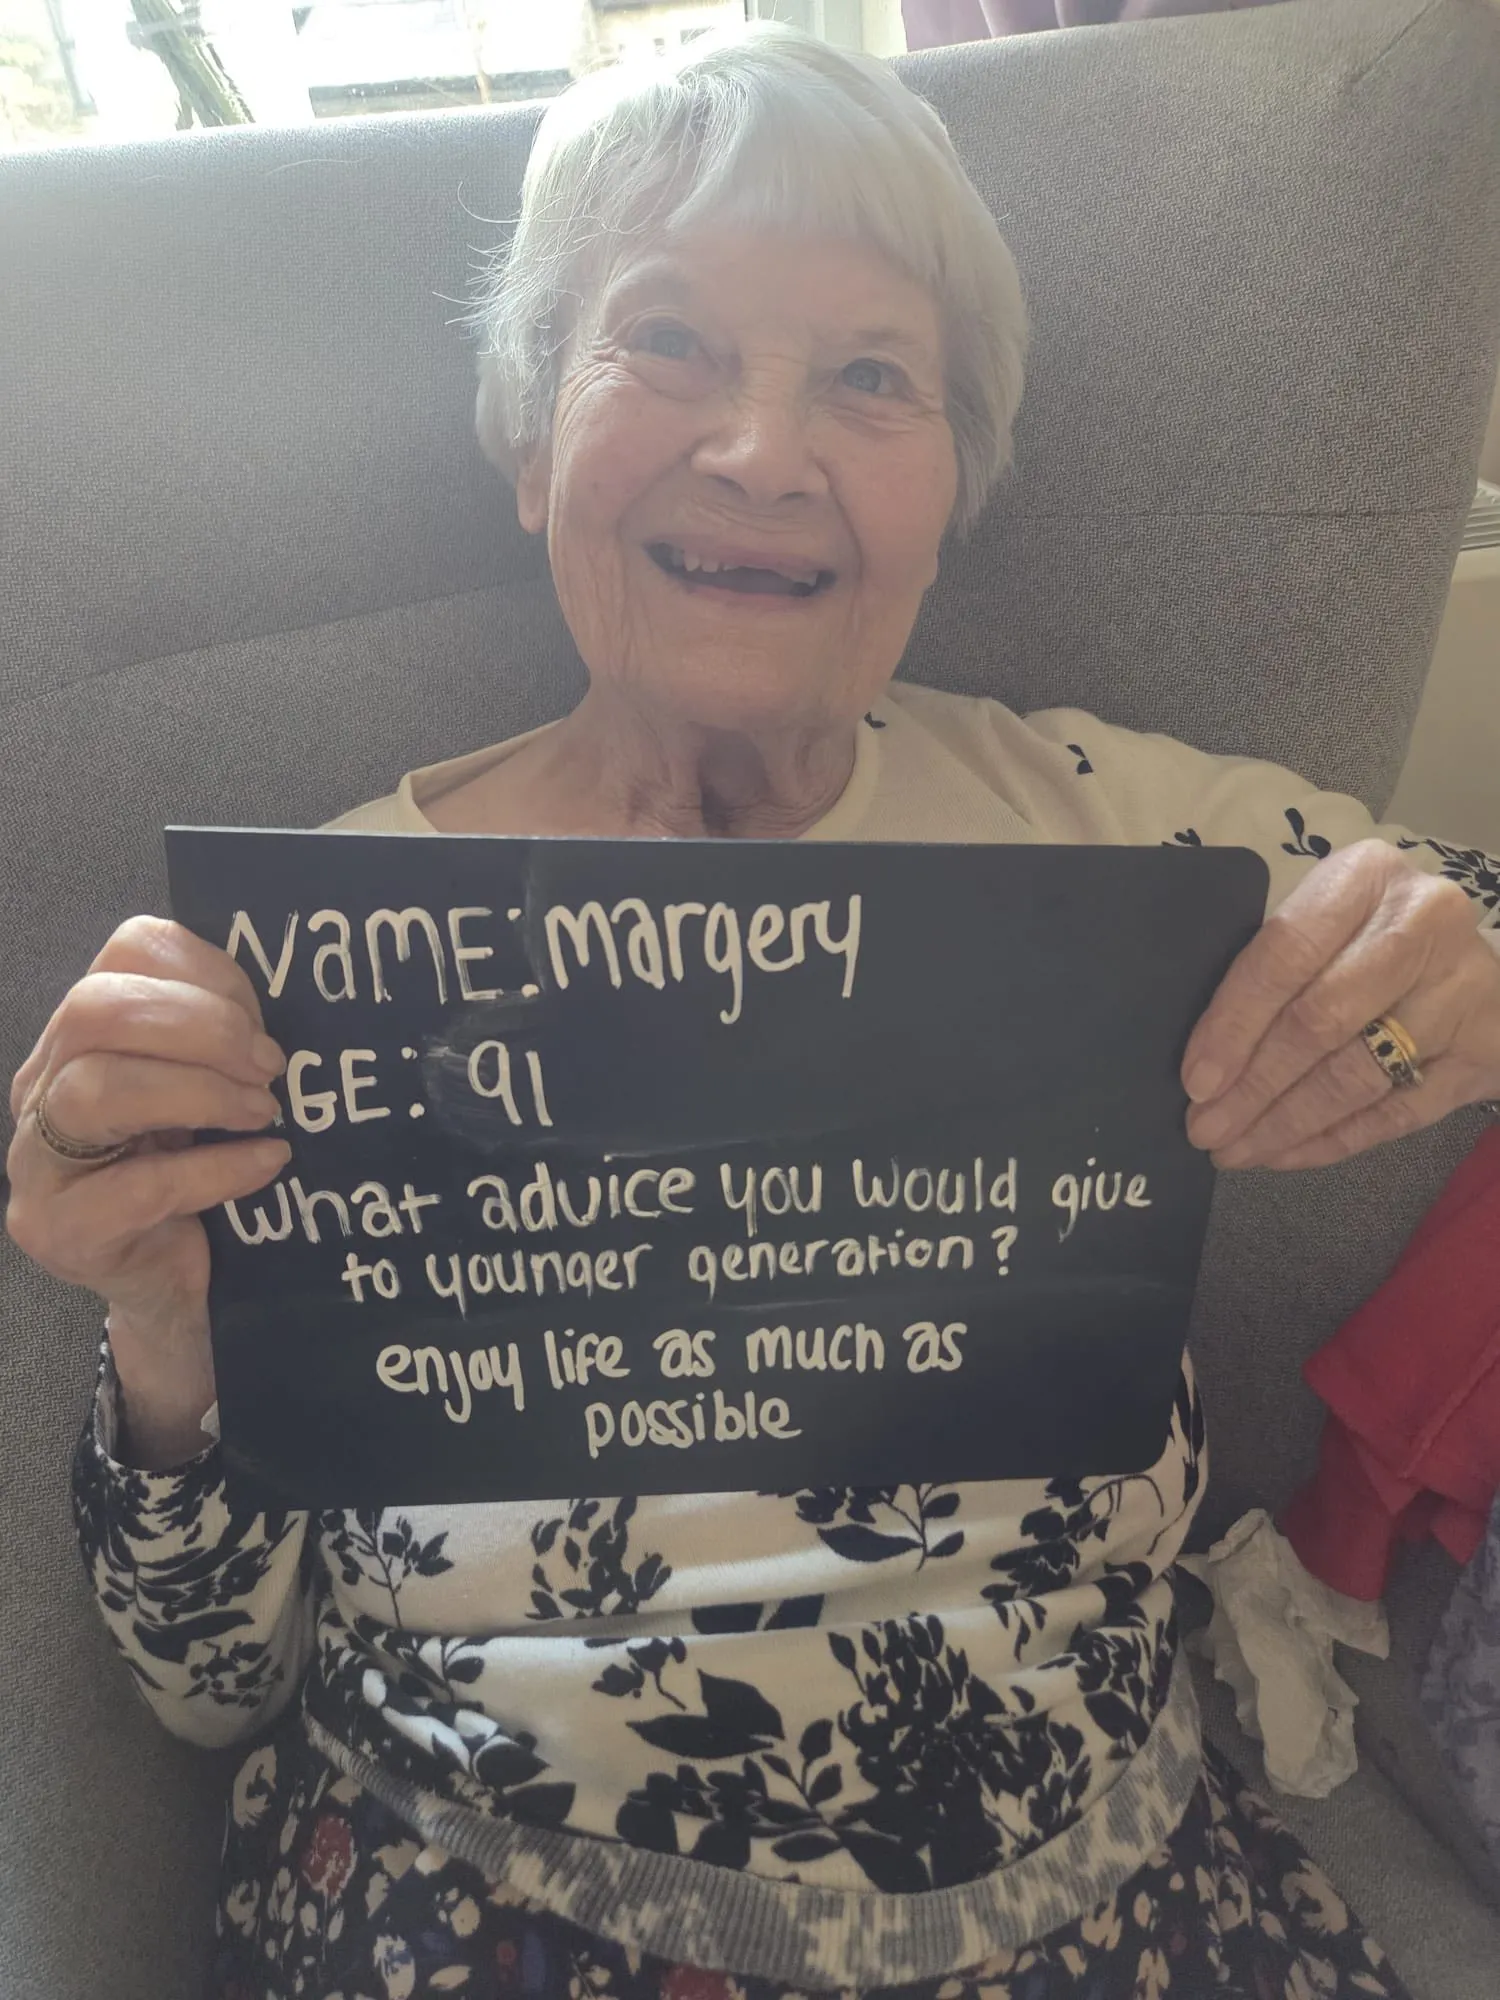 NaME: margery
AGE: 91
What advice you would give
to younger generation?
enjoy life as much as
possible